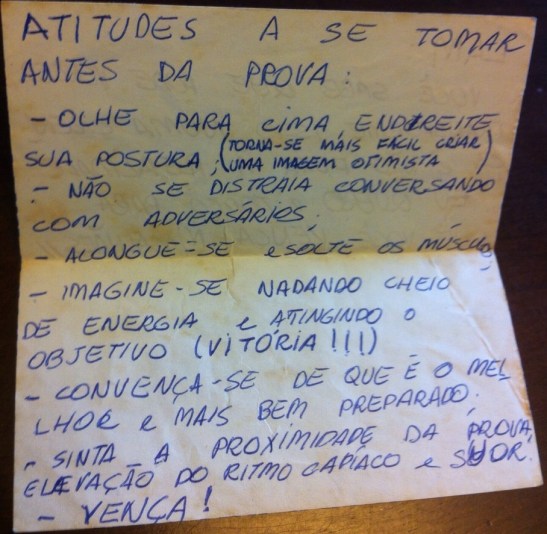 ATITUDES A SE TOMAR
ANTES DA PROVA:
- OLHE PARA CIMA, ENDIREITE
SUA POSTURA; (TORNA-SE MAIS FÁCIL CRIAR
UMA IMAGEM OTIMISTA)
- NÃO SE DISTRAIA CONVERSANDO
COM ADVERSÁRIOS;
- ALONGUE-SE e SOLTE OS MÚSCULOS
- IMAGINE-SE NADANDO CHEIO
DE ENERGIA e ATINGINDO O
OBJETIVO (VITÓRIA!!!)
- CONVENÇA-SE DE QUE É O MEL
LHOR e MAIS BEM PREPARADO;
- SINTA A PROXIMIDADE DA PROVA,
ELEVAÇÃO DO RITMO CAPÍACO e SUOR.
- VENÇA!